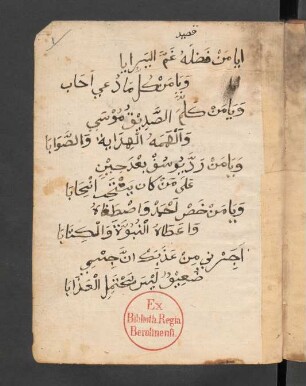 قصيد
ايا من فضله عم البرايا
ويا من كل ما دعي اجاب
ويا من كلم الصديق موسى
والهمه الهداية والصوابا
ويا من رد يوسف بعد حين
على من كان ينتحب انتحابا
ويا من خص احمد واصطفاه
واعطاه النبوة والكتابا
اجرني من عذابك ان جسمي
ضعيف ليس يحتمل العذابا
Ex
Biblioth. Regia
Berolinensi.